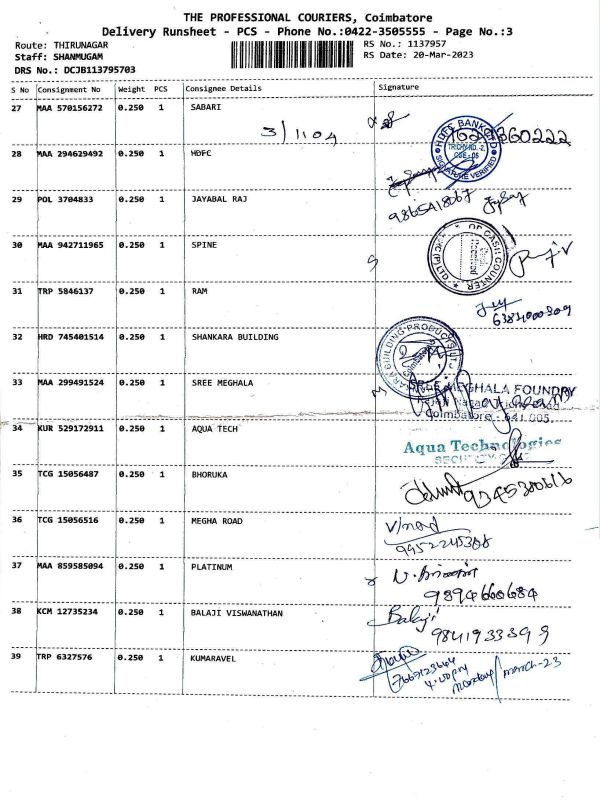 THE PROFESSIONAL COURIERS, Coimbatore
Delivery Runsheet - PCS - Phone No.:0422-3505555 - Page No.:3
Route: THIRUNAGAR
RS No.: 1137957
Staff: SHANMUGAM
RS Date: 20-Mar-2023
DRS No.: DCJB113795703
S No Consignment No Weight PCS Consignee Details Signature
27 MAA 570156272 0.250 1 SABARI
3/1104
HDFC BANK
TRICHY RD.
CBE - 05
SIGNATURE VERIFIED
28 MAA 294629492 0.250 1 HDFC
29 POL 3704833 0.250 1 JAYABAL RAJ
9865418067
30 MAA 942711965 0.250 1 SPINE
CASH COUNTER
31 TRP 5846137 0.250 1 RAM
32 HRD 745401514 0.250 1 SHANKARA BUILDING
BUILDING PRODUCTS LT
Coimbatore
33 MAA 299491524 0.250 1 SREE MEGHALA
SREE MEGHALA FOUNDRY
Coimbatore - 641 005.
34 KUR 529172911 0.250 1 AQUA TECH
Aqua Technologies
35 TCG 15056487 0.250 1 BHORUKA
9245300616
36 TCG 15056516 0.250 1 MEGHA ROAD
Vinod
9952245308
37 MAA 859585094 0.250 1 PLATINUM
9894660684
38 KCM 12735234 0.250 1 BALAJI VISWANATHAN
Balaji
9841933399
39 TRP 6327576 0.250 1 KUMARAVEL
4.00pm
Monday/march-23